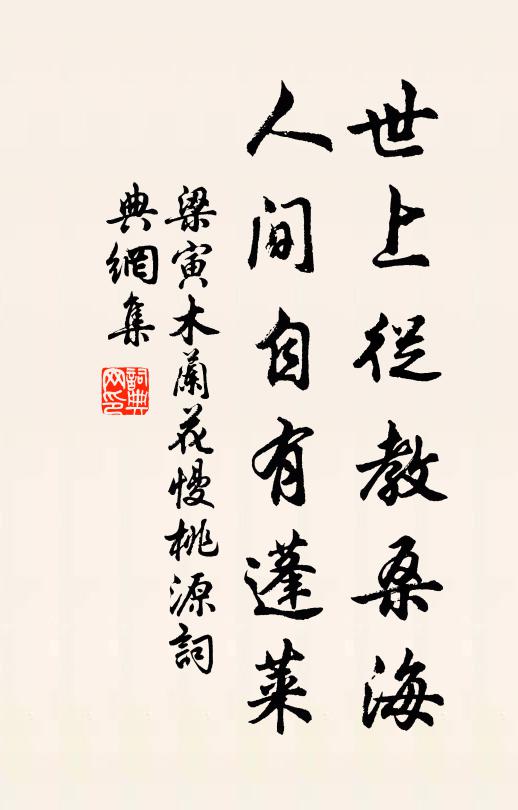 世上從教桑海
人間自有蓬萊
梁寅木蘭花慢桃源詞
典網集
詞典網印